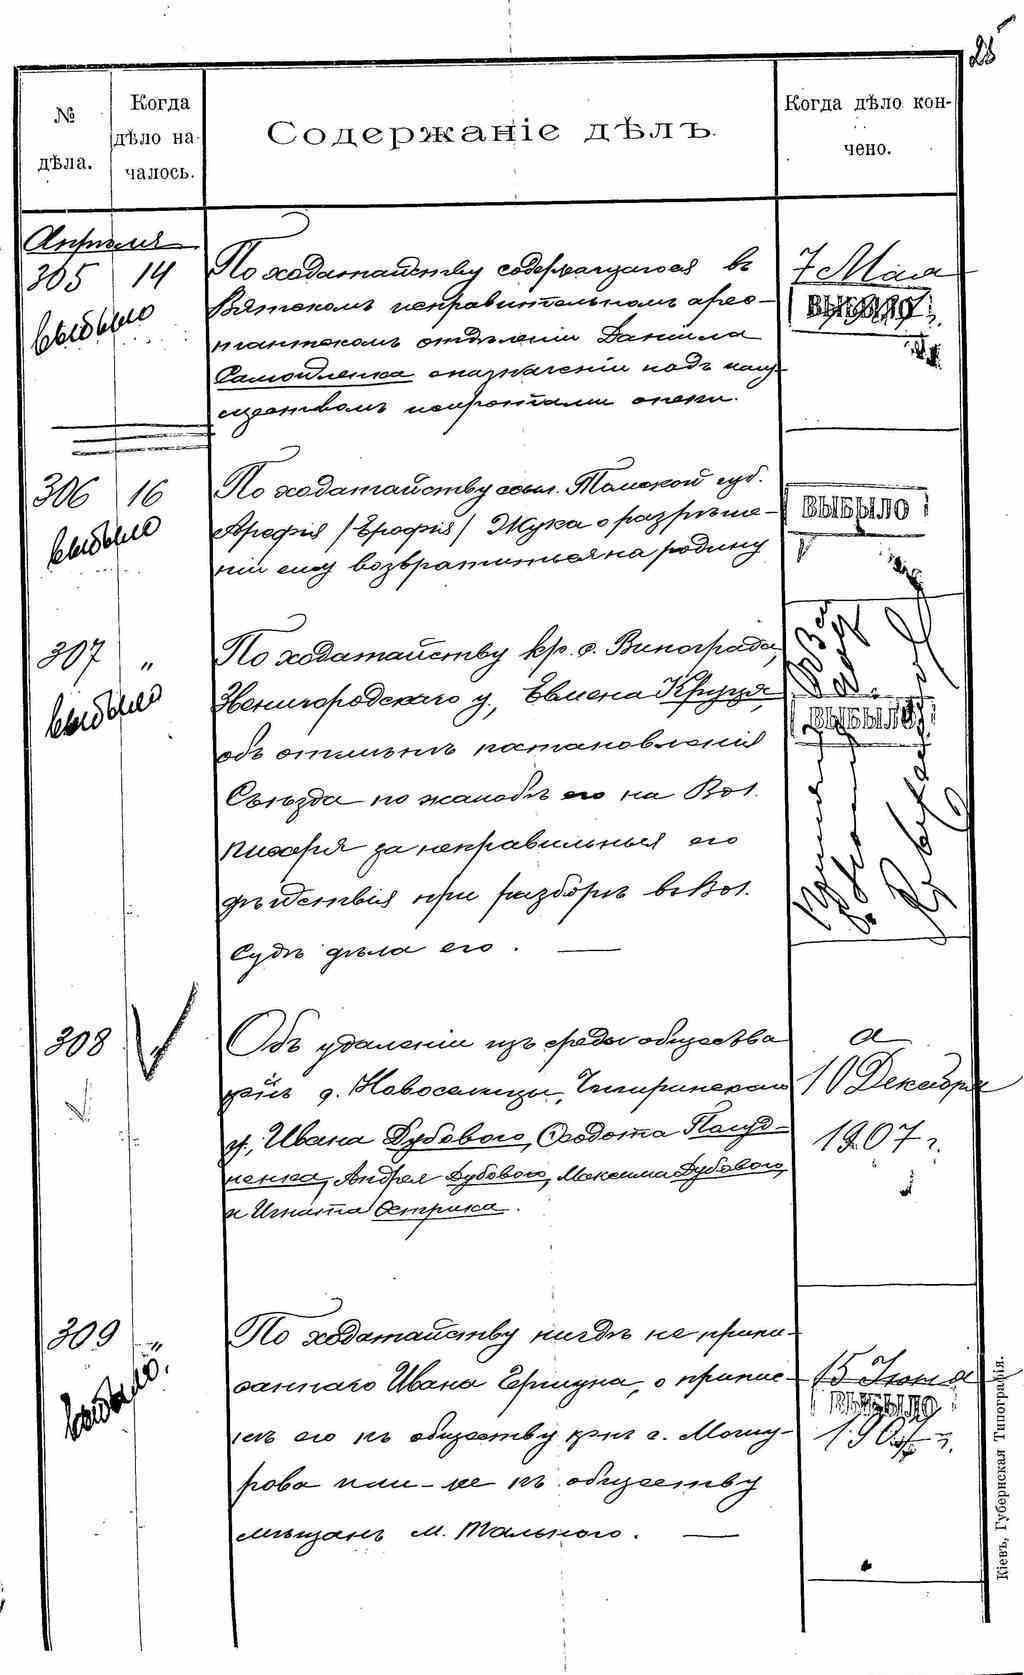 25
№ дѣла.
Когда дѣло на-
чалось.
Содержаніе дѣлъ.
Когда дѣло кон-
чено.
Апрѣля
305 14 По ходатайству содержащагося въ
Вятскомъ исправительномъ арес-
тантскомъ отдѣленіи Даніила
Самойленка о назначеніи надъ иму-
ществомъ опеки.
выбыло
7 Мая
1907 г.
ВЫБЫЛО
306 16 По ходатайству ссыл. Томской губ.
Арефія /Ерофія/ Жука о разрѣше-
ніи ему возвратиться на родину
выбыло
ВЫБЫЛО
307 " По ходатайству кр. с. Винограда,
Звенигородскаго у., Евмена
объ отмѣнѣ постановленія
Съѣзда по жалобѣ его на Вол.
писаря за неправильныя его
дѣйствія при разборѣ въ Вол.
Судѣ дѣла его. —
выбыло
ВЫБЫЛО
308 " Объ удаленіи изъ среды общества
кр-нъ д. Новоселицы, Чигиринскаго
у., Ивана Дубового, Ѳеодота Полуд-
ненка, Андрея Дубового, Максима Дубового,
и Игната Острика.
10 Декабря
1907 г.
309 " По ходатайству нигдѣ не припи-
саннаго Ивана о припис-
кѣ его къ обществу кр-нъ с. Мошу-
рова или-же къ обществу
мѣщанъ м. Тального. —
выбыло.
15 Іюня
ВЫБЫЛО
1907 г.
Кіевъ, Губернская Типографія.